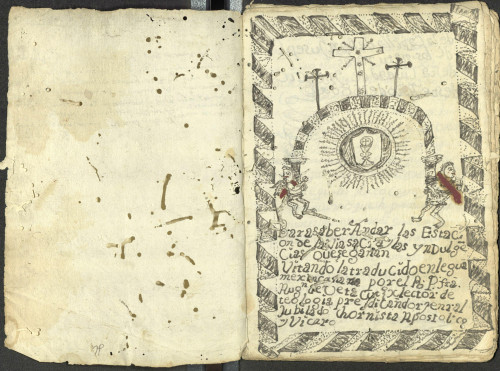 Para saber Andar las Estac
on de la Viasacra y las yndulge
cias que se ganan
Vitando la traducido en legua
mexicana por el R. P. fra.
Aug.n de Vetancurt lector de
teologia predicandor genral
Jubilado Chornista Apostolico
y Vicaro